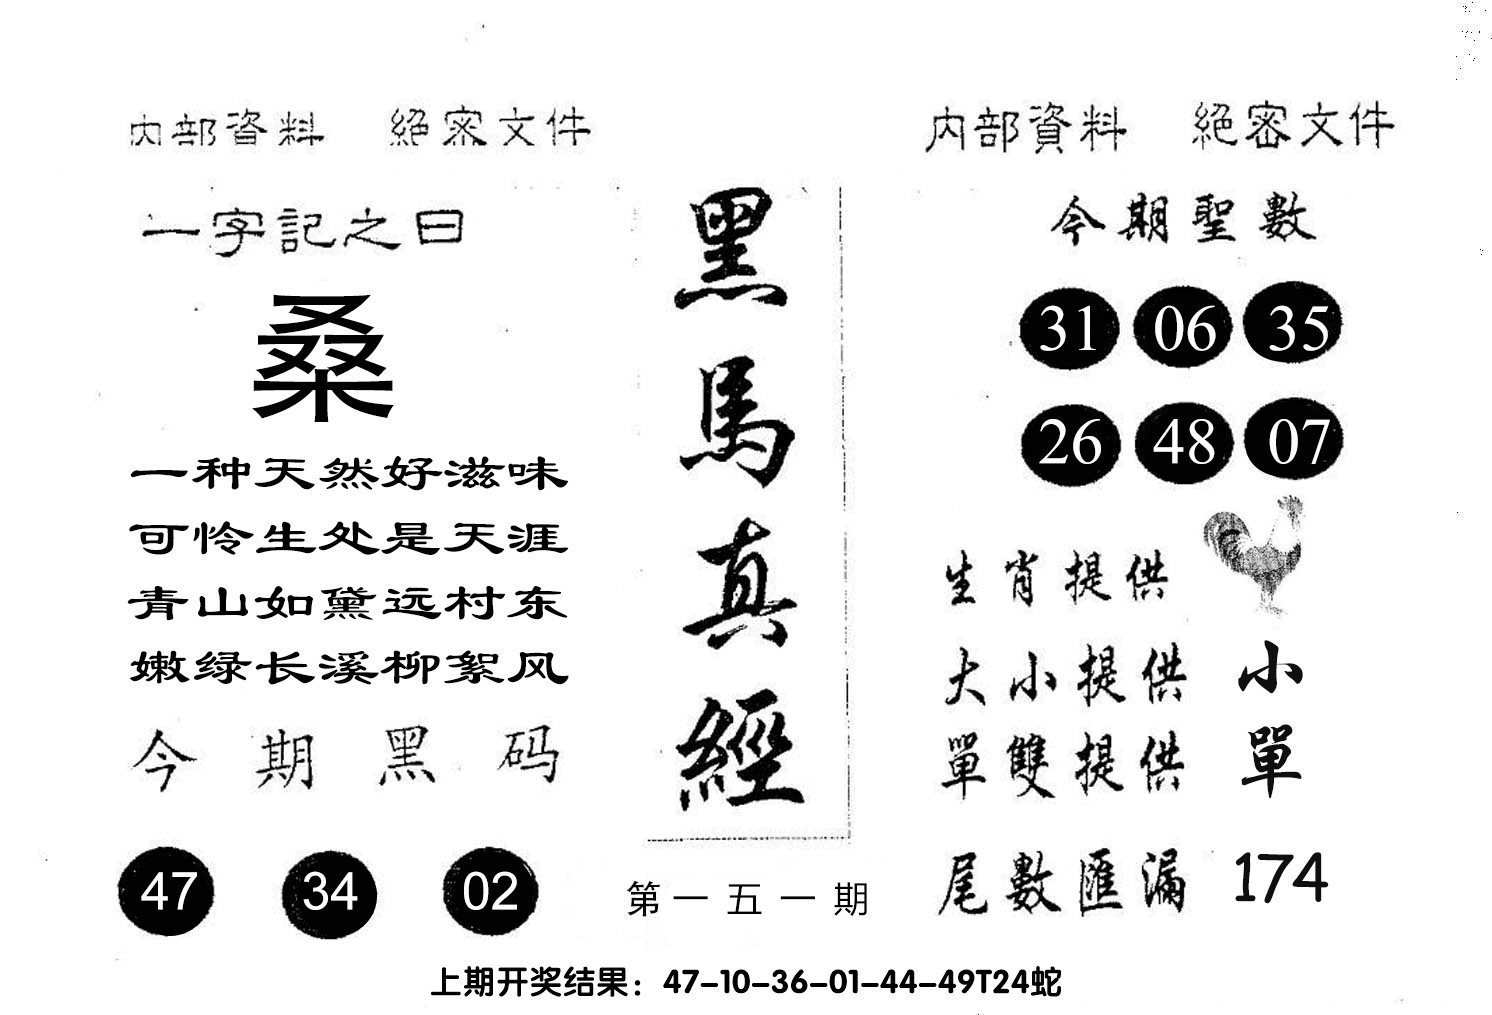 内部資料 絕密文件
一字記之曰
桑
一种天然好滋味
可怜生处是天涯
青山如黛远村东
嫩绿长溪柳絮风
今期黑码
47 34 02
黑馬真經
第一五一期
内部資料 絕密文件
今期聖數
31 06 35
26 48 07
生肖提供
大小提供 小
單雙提供 單
尾數匯漏 174
上期开奖结果：47-10-36-01-44-49T24蛇